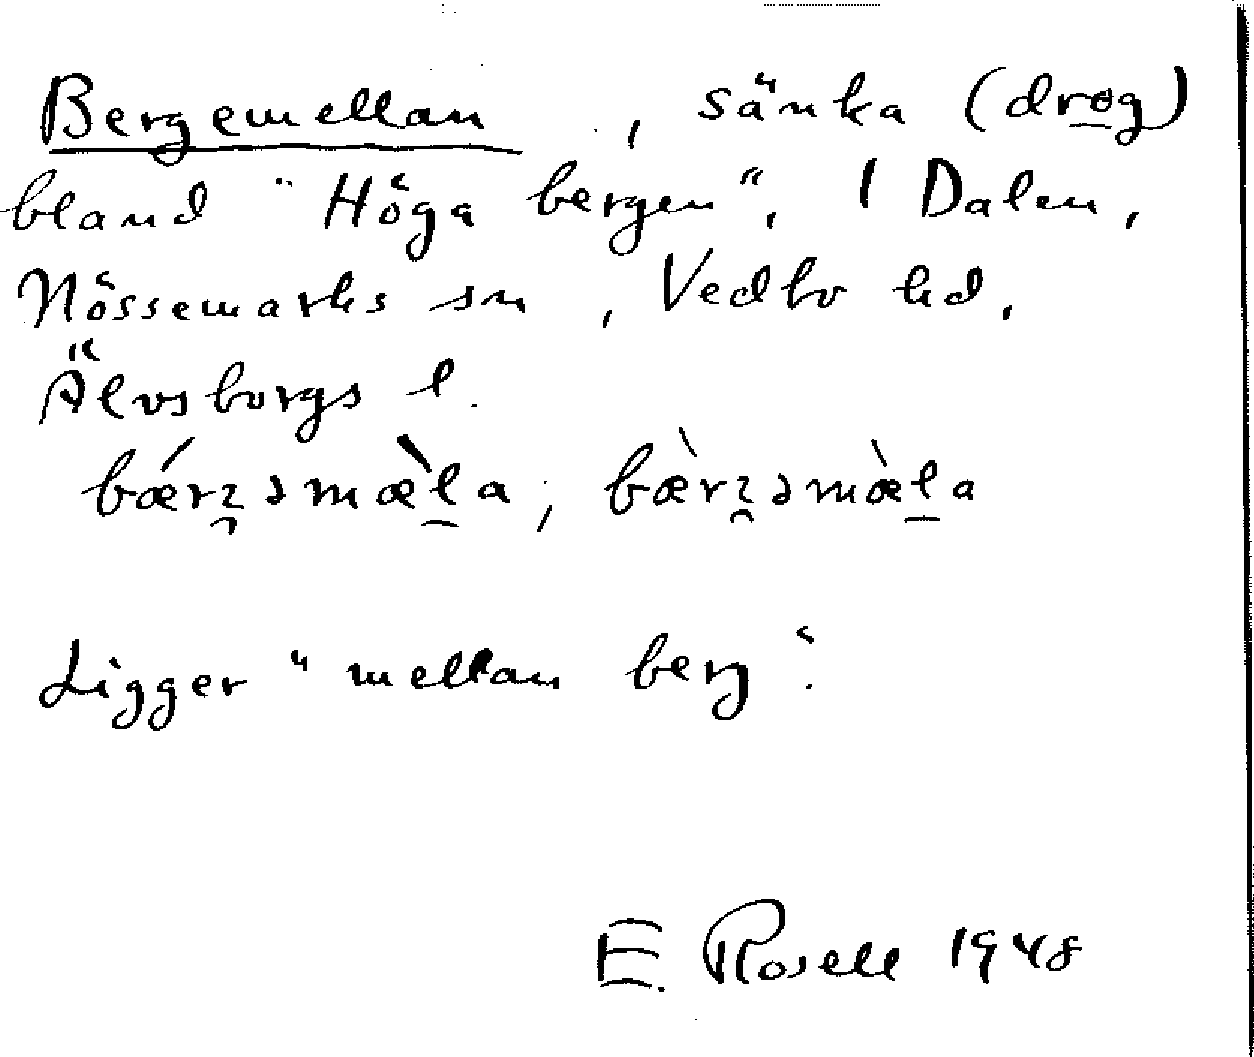 Bergemellan, sänka (drog)
bland "Höga bergen", 1 Dalen,
Nössemarks sn, Vedbo hd,
Älvsborgs l.
Ligger "mellan berg".
E. Rosell 1948